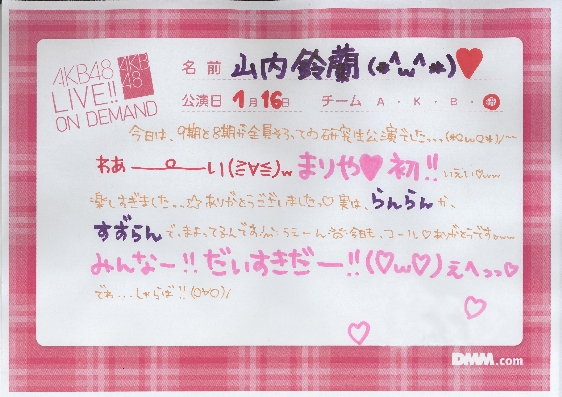 AKB48
LIVE!!
ON DEMAND
AKB
48
名前 山内鈴蘭(*^ω^*)♥
公演日 1月16日 チーム A・K・B・研
今日は、9期と8期が全員そろっての研究生公演でしたっっ(*OωO*)/~~
わあーーoーーい(≧∀≦)w まりや♥初!!
楽しすぎましたっっ ありがとうございましたっ♡ 実は、らんらんか、
すずらんで、まよってるんです うえーん 今日も、コール♡ありがとうですw
みんなー!!だいすきだー!!(♡ω♡)えへっっ♡
でわ...しゃらば!!(O∀O)/
DMM.com